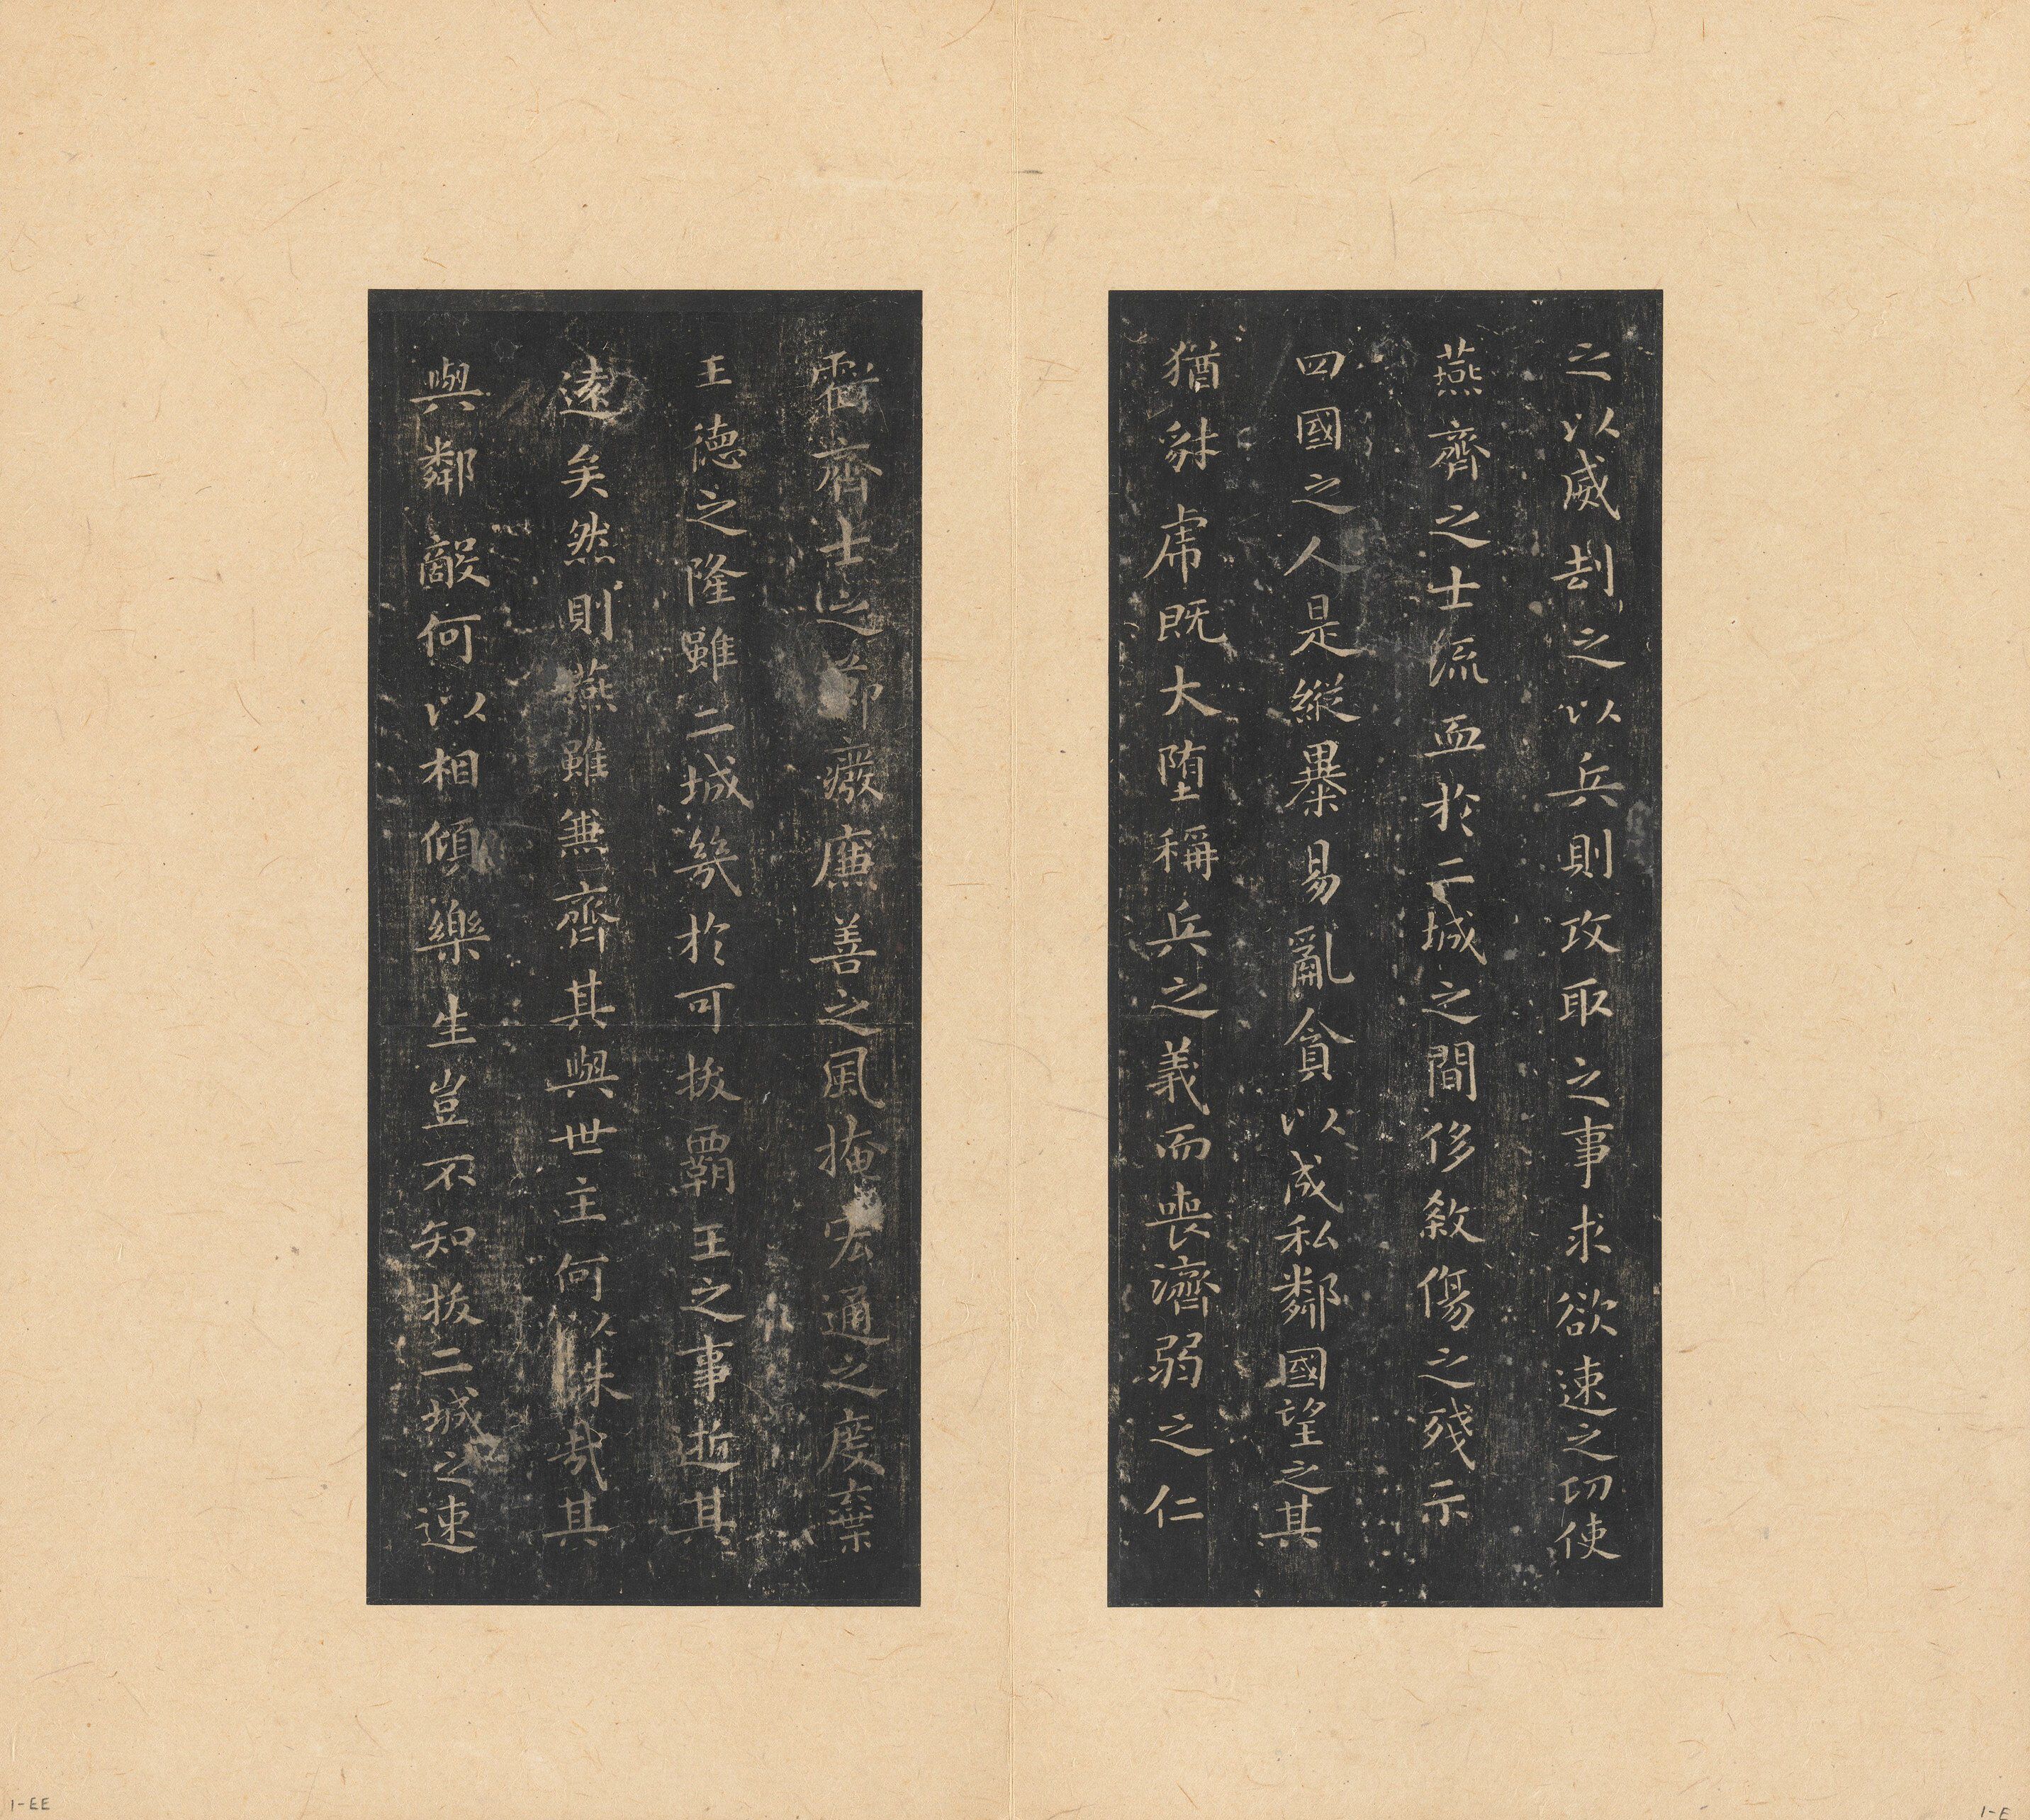 之以威刦之以兵則攻取之事求欲速之功使
燕齊之士流血於二城之間侈敘傷之殘示
四國之人是縱暴易亂貪以成私鄰國望之其
猶豺虎既大墮稱兵之義而喪濟弱之仁
虧齊士之節癈廉善之風掩宏通之度棄
王德之隆雖二城幾於可拔霸王之事逝其
遠矣然則燕雖兼齊其與世主何以殊哉其
與鄰敵何以相傾樂生豈不知拔二城之速
1-EE
1-E